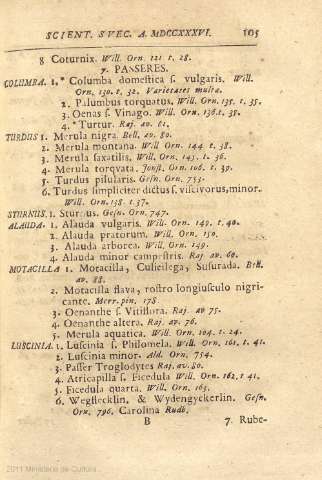 SCIENT. SVEC. A. MDCCXXXVI. 105
8 Coturnix. Will. Orn. 121 t. 28.
7. PASSERES.
COLUMBA. 1.* Columba domestica s. vulgaris. Will.
Orn. 130. t. 32. Varietates multæ.
2. Palumbus torquatus. Will. Orn. 135. t. 35.
3. Oenas s. Vinago. Will. Orn. 136. t. 35.
4. *Turtur. Raj. av. 61.
TURDUS 1. Merula nigra. Bell. av. 80.
2. Merula montana. Will. Orn. 144 t. 38.
3. Merula saxatilis. Will. Orn. 145. t. 36.
4. Merula torqvata. Jonst. Orn. 106. t. 39.
5. Turdus pilularis. Gesn. Orn. 753.
6. Turdus simpliciter dictus s. viscivorus, minor.
Will. Orn. 138. t. 37.
STURNUS. 1. Sturnus. Gesn. Orn. 747.
ALAUDA. 1. Alauda vulgaris. Will. Orn. 149. t. 40.
2. Alauda pratorum. Will. Orn. 150.
3. Alauda arborea. Will. Orn. 149.
4. Alauda minor campestris. Raj. av. 60.
MOTACILLA 1. Motacilla, Culicilega, Susurada. Bell.
av. 88.
2. Motacilla flava, rostro longiusculo nigri-
cante. Merr. pin. 178
3. Oenanthe s. Vitiflora. Raj. av 75.
4. Oenanthe altera. Raj. av. 76.
5. Merula aquatica. Will. Orn. 104. t. 24.
LUSCINIA. 1. Luscinia s. Philomela. Will. Orn. 161. t. 41.
2. Luscinia minor. Ald. Orn. 754.
3. Passer Troglodytes Raj. av. 80.
4. Atricapilla s. Ficedula Will. Orn. 162. t. 41.
5. Ficedula quarta. Will. Orn. 163.
6. Wegflecklin, & Wydengyckerlin. Gesn.
Orn. 796. Carolina Rudb.
B 7. Rube-
2011 Ministerio de Cultura